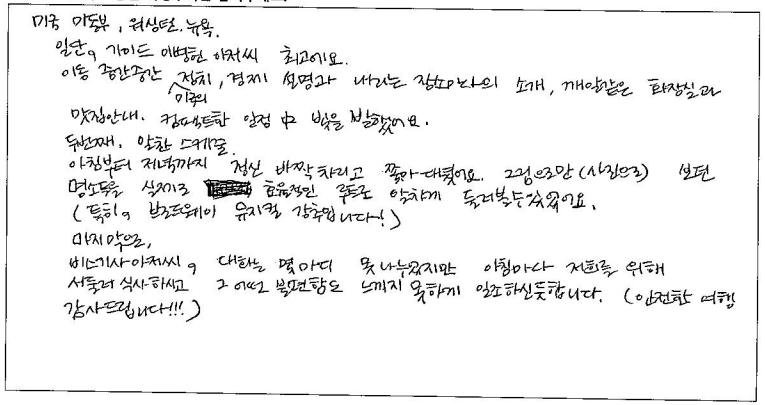 미국 마동부, 워싱턴. 뉴욕.
일단, 가이드 이병헌 아저씨 최고에요.
이동 중간중간 미국의 정치, 경제 설명과 내리는 장소마다의 소개, 깨알같은 화장실과
맛집안내. 컴팩트한 일정 中 빛을 발했어요.
두번째. 알찬 스케쥴.
아침부터 저녁까지 정신 바짝 차리고 쫓아다녔어요. 그림으로만 (사진으로) 보던
명소들을 실제로 효율적인 루트로 알차게 둘러볼수 있었어요.
(특히, 브로드웨이 뮤지컬 강추입니다!)
마지막으로,
버스기사아저씨, 대화는 몇마디 못 나누었지만 아침마다 저희를 위해
서둘러 식사하시고 그 어떤 불편함도 느끼지 못하게 일조하신듯합니다. (안전한 여행
감사드립니다!!!)